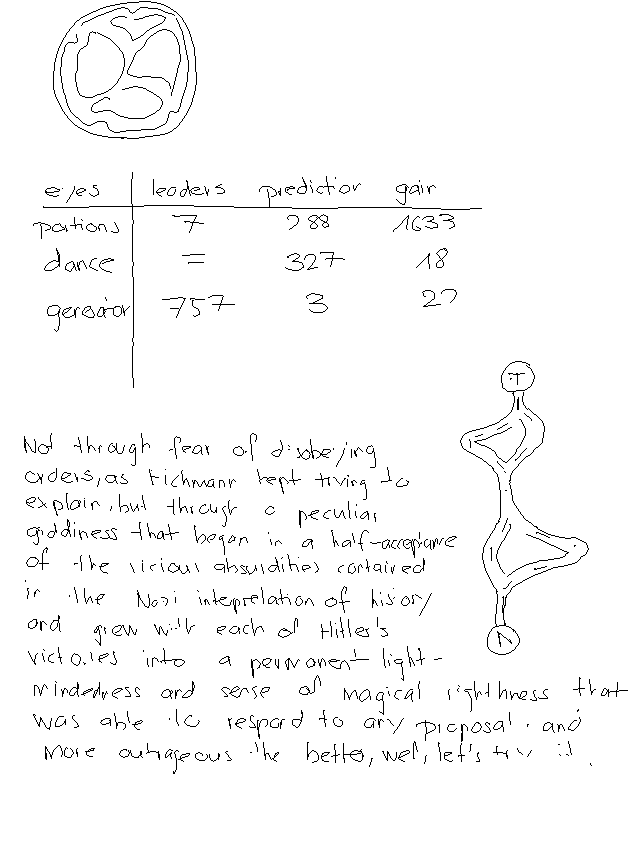 eyes leaders prediction gain
portions 7 288 1633
dance = 327 18
generator 757 3 22
T
Not through fear of disobeying
orders, as Eichmann kept trying to
explain, but through a peculiar
giddiness that began in a half-acceptance
of the vicious absurdities contained
in the Nazi interpretation of history
and grew with each of Hitler's
victories into a permanent light-
mindedness and sense of magical rightness that
was able to respond to any proposal, and
more outrageous the better, well, let's try it.
N